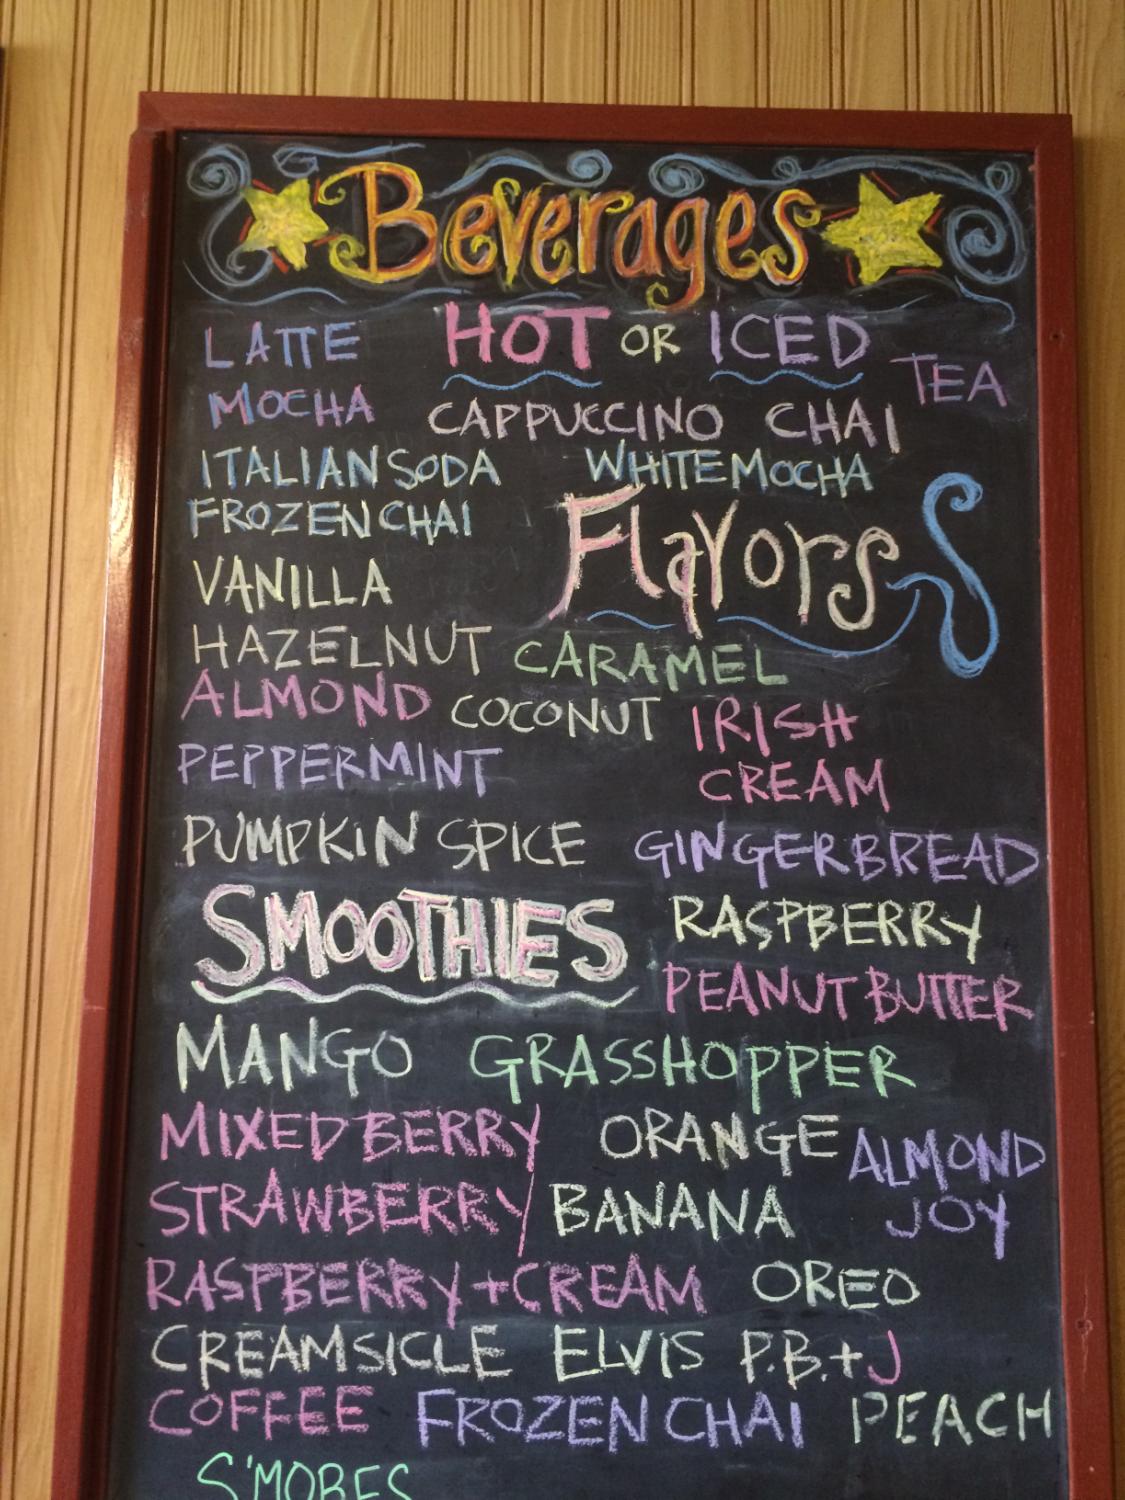 Beverages
LATTE HOT OR ICED TEA
MOCHA CAPPUCCINO CHAI
ITALIAN SODA WHITE MOCHA
FROZEN CHAI Flavors
VANILLA
HAZELNUT CARAMEL
ALMOND COCONUT IRISH
PEPPERMINT CREAM
PUMPKIN SPICE GINGERBREAD
SMOOTHIES RASPBERRY
PEANUT BUTTER
MANGO GRASSHOPPER
MIXED BERRY ORANGE ALMOND
STRAWBERRY BANANA JOY
RASPBERRY + CREAM OREO
CREAMSICLE ELVIS P.B.+J
COFFEE FROZEN CHAI PEACH
S'MORES